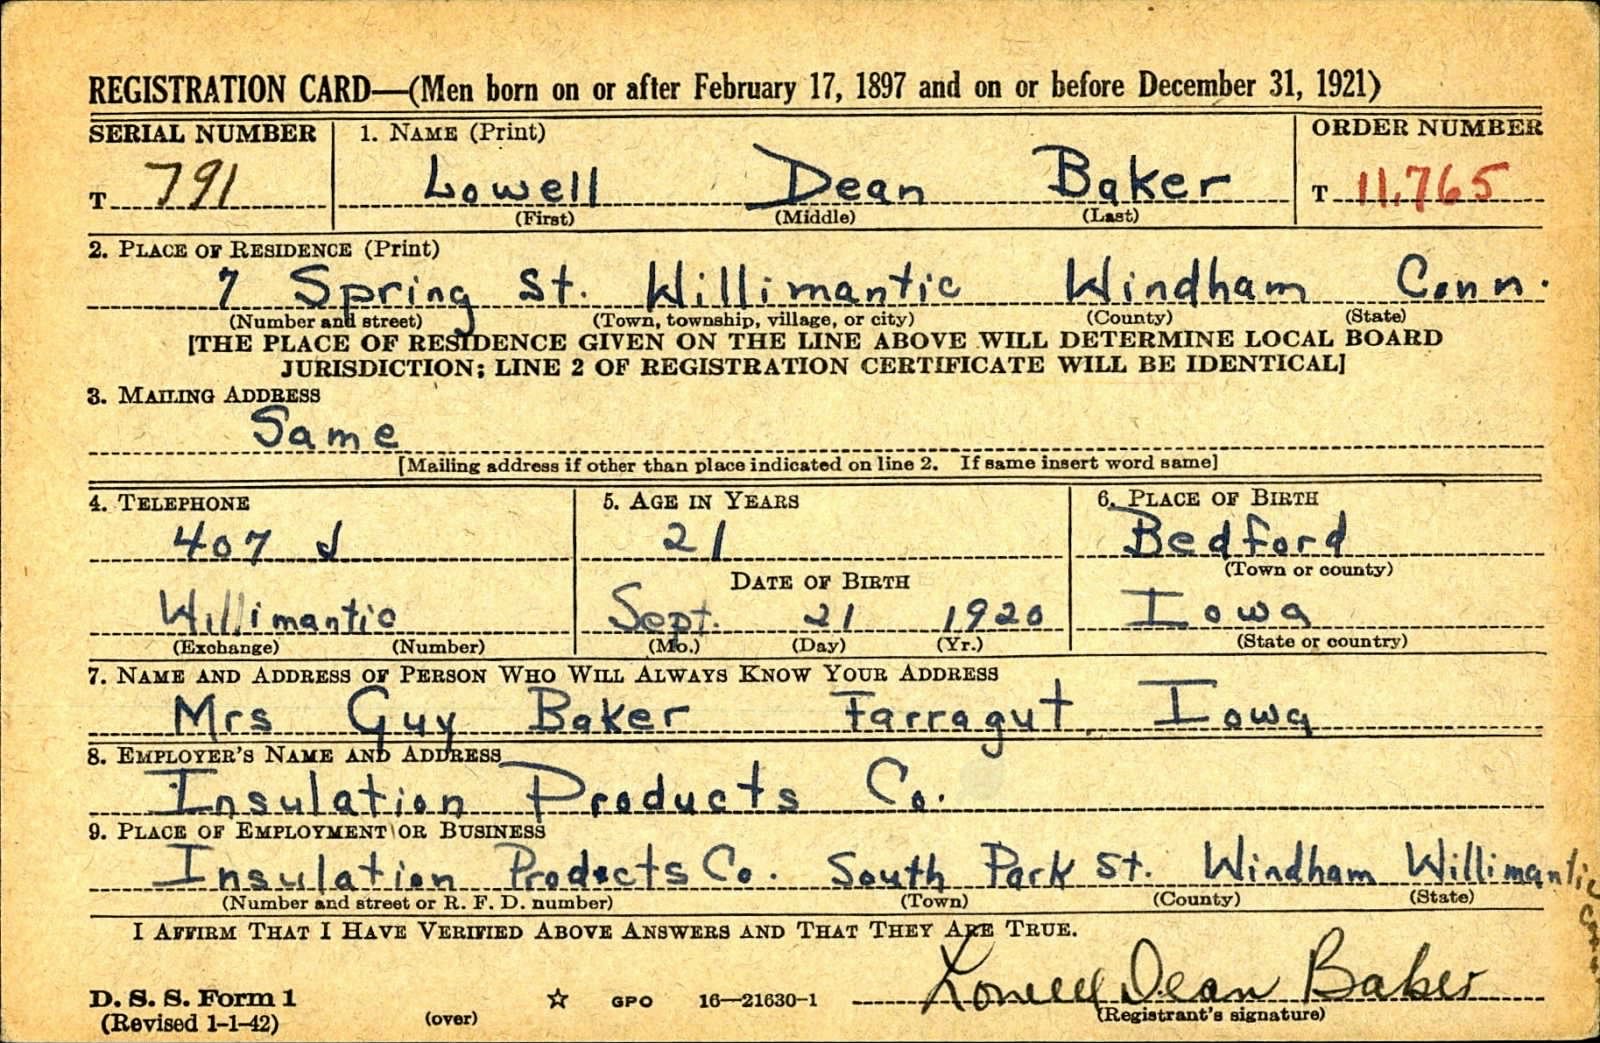 REGISTRATION CARD—(Men born on or after February 17, 1897 and on or before December 31, 1921)
SERIAL NUMBER 1. NAME (Print) ORDER NUMBER
T 791 Lowell Dean Baker T 11,765
(First) (Middle) (Last)
2. PLACE OF RESIDENCE (Print)
7 Spring St. Willimantic Windham Conn.
(Number and street) (Town, township, village, or city) (County) (State)
[THE PLACE OF RESIDENCE GIVEN ON THE LINE ABOVE WILL DETERMINE LOCAL BOARD
JURISDICTION; LINE 2 OF REGISTRATION CERTIFICATE WILL BE IDENTICAL]
3. MAILING ADDRESS
Same
[Mailing address if other than place indicated on line 2. If same insert word same]
4. TELEPHONE 5. AGE IN YEARS 6. PLACE OF BIRTH
407 J 21 Bedford
(Town or county)
DATE OF BIRTH
Willimantic Sept. 21 1920 Iowa
(Exchange) (Number) (Mo.) (Day) (Yr.) (State or country)
7. NAME AND ADDRESS OF PERSON WHO WILL ALWAYS KNOW YOUR ADDRESS
Mrs Guy Baker Farragut, Iowa
8. EMPLOYER'S NAME AND ADDRESS
Insulation Products Co.
9. PLACE OF EMPLOYMENT OR BUSINESS
Insulation Products Co. South Park St. Windham Willimantic Conn.
(Number and street or R. F. D. number) (Town) (County) (State)
I AFFIRM THAT I HAVE VERIFIED ABOVE ANSWERS AND THAT THEY ARE TRUE.
Lowell Dean Baker
D. S. S. Form 1 ☆ GPO 16—21630-1
(Registrant's signature)
(Revised 1-1-42) (over)